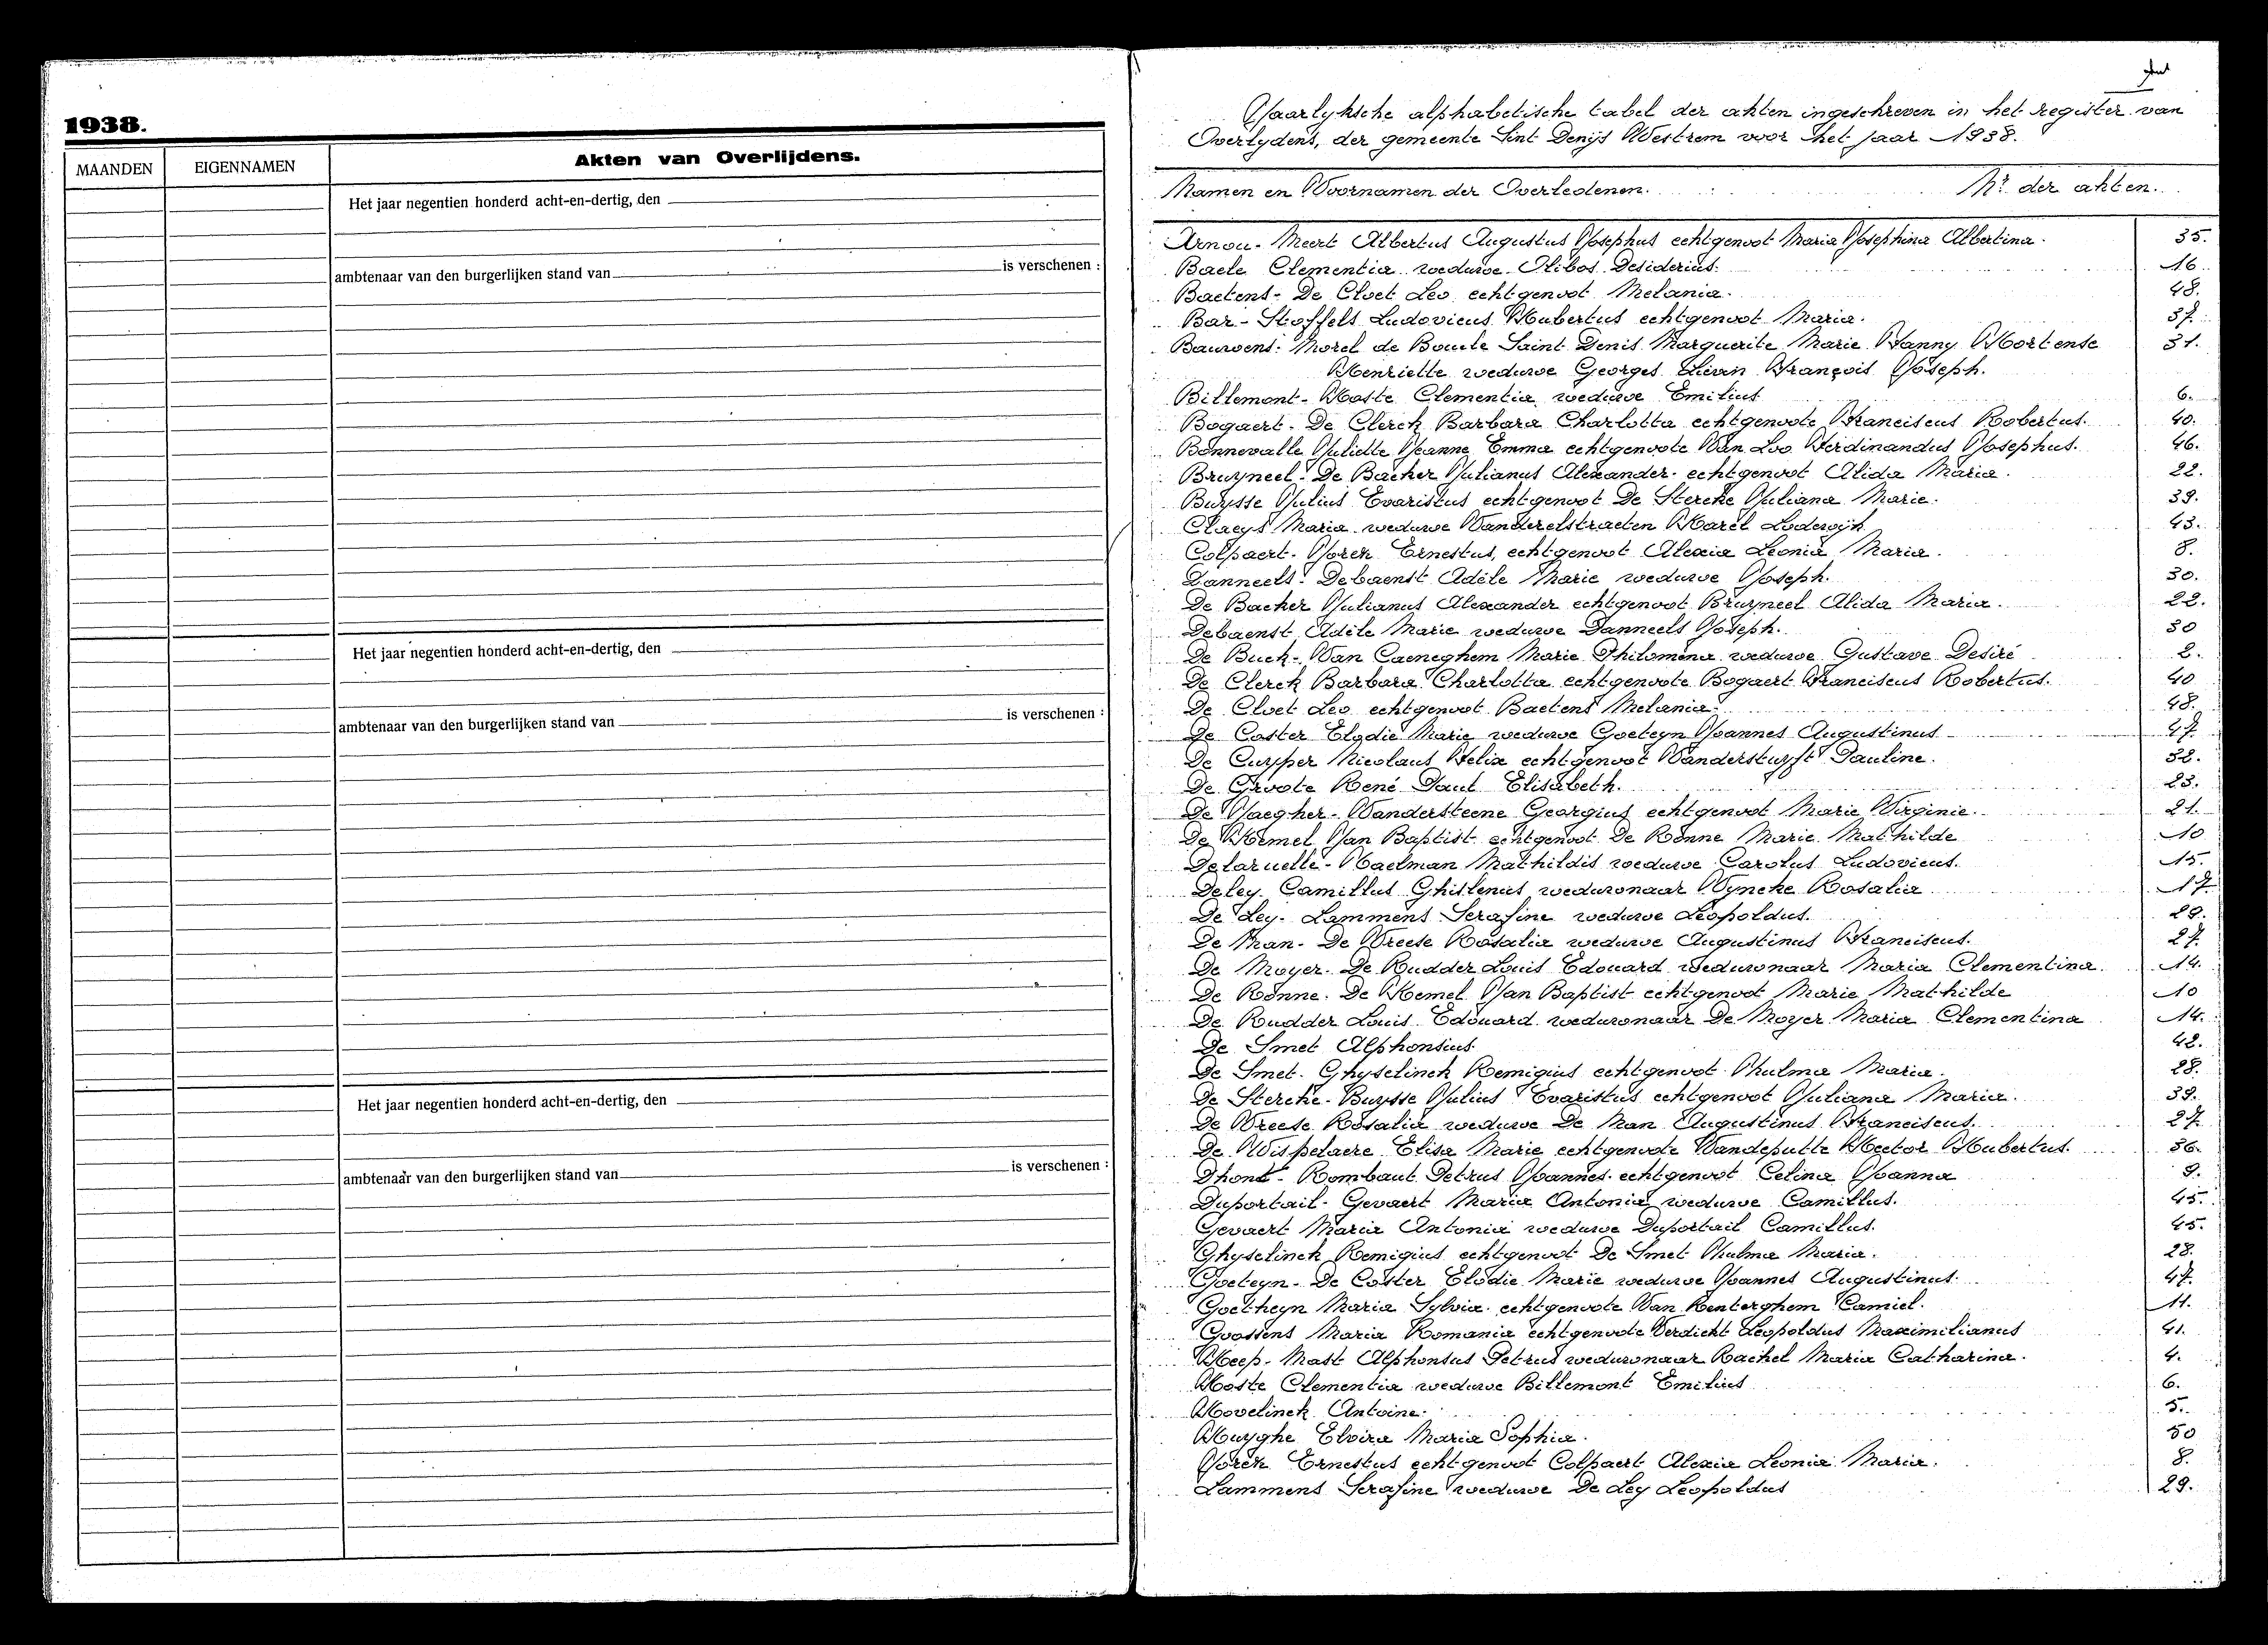 1938.
MAANDEN
EIGENNAMEN
Akten van Overlijdens.
Het jaar negentien honderd acht-en-dertig, den
ambtenaar van den burgerlijken stand van is verschenen :
Het jaar negentien honderd acht-en-dertig, den
ambtenaar van den burgerlijken stand van is verschenen :
Het jaar negentien honderd acht-en-dertig, den
ambtenaar van den burgerlijken stand van is verschenen :
Jaarlyksche alphabetische tabel der akten ingeschreven in het register van
Overlydens, der gemeente Sint Denijs Westrem voor het jaar 1938.
Namen en Voornamen der Overledenen. Nr. der akten.
Arnou-Meert Albertus Augustus Josephus echtgenoot Maria Josephina Albertina. 35.
Baele Clementia weduwe Olibos Desiderius. 16.
Baetens-De Cloet Leo echtgenoot Melania. 48.
Bar-Stoffels Ludovicus Hubertus echtgenoot Maria. 37.
Bauwens-Morel de Boucle Saint Denis Marguerite Marie Fanny Hortense 31.
Henriette weduwe Georges Lievin François Joseph.
Billemont-Hoste Clementia weduwe Emilius 6.
Bogaert-De Clerck Barbara Charlotta echtgenoote Franciscus Robertus. 40.
Bonnevalle Juliette Jeanne Emma echtgenoote Van Loo Ferdinandus Josephus. 46.
Bruyneel-De Backer Julianus Alexander echtgenoot Alida Maria. 22.
Buysse Julius Evaristus echtgenoot De Stercke Juliana Marie. 39.
Claeys Maria weduwe Vanderelstraeten Karel Lodewijk 43.
Colpaert-Jorez Ernestus, echtgenoot Alexia Leonia Maria. 8.
Danneels-Debaenst Adèle Marie weduwe Joseph. 30.
De Backer Julianus Alexander echtgenoot Bruyneel Alida Maria. 22.
Debaenst Adèle Marie weduwe Danneels Joseph. 30
De Buck-Van Caeneghem Marie Philomène weduwe Gustave Desiré 2.
De Clerck Barbara Charlotta echtgenoote Bogaert Franciscus Robertus. 40
De Cloet Leo echtgenoot Baetens Melania. 48.
De Coster Elodie Marie weduwe Goeteyn Joannes Augustinus 47.
De Cuyper Nicolaus Felix echtgenoot Vanderstuyft Pauline. 32.
De Groote René Paul Elisabeth. 23.
De Jaegher-Vandersteene Georgius echtgenoot Marie Virginie. 21.
De Kemel Jan Baptist echtgenoot De Rönne Marie Mathilde 10
Delaruelle-Haelman Mathildis weduwe Carolus Ludovicus. 15.
Deley Camillus Ghislenus weduwnaar Wyncke Rosalia 17
De Ley-Lammens Serafine weduwe Leopoldus. 29.
De Man-De Vreese Rosalia weduwe Augustinus Franciscus. 27.
De Moyer-De Rudder Louis Edouard weduwnaar Maria Clementina. 14.
De Rönne-De Kemel Jan Baptist echtgenoot Marie Mathilde 10
De Rudder Louis Edouard weduwnaar De Moyer Maria Clementina 14.
De Smet Alphonsius 42.
De Smet-Ghyselinck Remigius echtgenoot Thulma Maria. 28.
De Stercke-Buysse Julius Evaristus echtgenoot Juliana Maria. 39.
De Vreese Rosalia weduwe De Man Augustinus Franciscus. 27.
De Wispelaere Elisa Marie echtgenoote Vandeputte Hector Hubertus. 36.
Dhont-Rombaut Petrus Joannes echtgenoot Celina Joanna 9.
Duportail-Gevaert Maria Antonia weduwe Camillus. 45.
Gevaert Maria Antonia weduwe Duportail Camillus. 45.
Ghyselinck Remigius echtgenoot De Smet Thulma Maria. 28.
Goeteyn-De Coster Elodie Marie weduwe Joannes Augustinus. 47.
Goetheyn Maria Sylvia echtgenoote Van Renterghem Camiel. 11.
Goossens Maria Romania echtgenoote Verdicht Leopoldus Maximilianus 41.
Heep-Mast Alphonsus Petrus weduwnaar Rachel Maria Catharina. 4.
Hoste Clementia weduwe Billemont Emilius 6.
Hovelinck Antoine. 5.
Huyghe Elvira Maria Sophia. 50
Jorez Ernestus echtgenoot Colpaert Alexia Leonia Maria. 8.
Lammens Serafine weduwe De Ley Leopoldus 29.